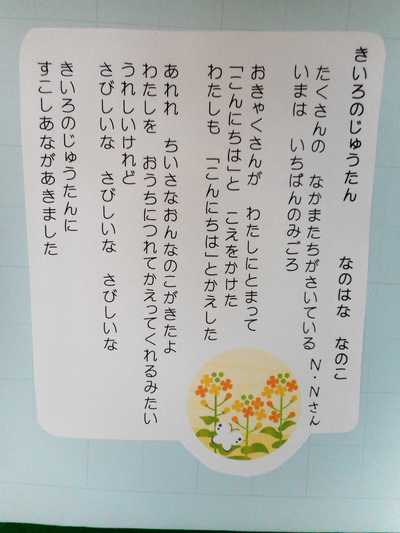 きいろのじゅうたん
なのはな　なのこ
N・Nさん
たくさんの　なかまたちがさいている
いまは　いちばんのみごろ
おきゃくさんが　わたしにとまって
「こんにちは」と　こえをかけた
わたしも　「こんにちは」とかえした
あれれ　ちいさなおんなのこがきたよ
わたしを　おうちにつれてかえってくれるみたい
うれしいけれど
さびしいな　さびしいな　さびしいな
きいろのじゅうたんに
すこしあながあきました